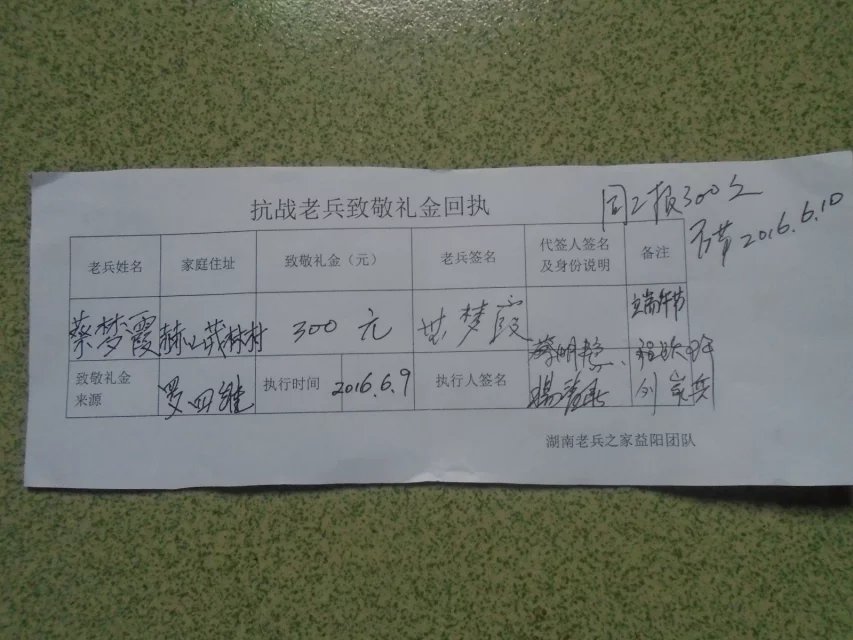 抗战老兵致敬礼金回执
同意报300元
2016.6.10
老兵姓名 家庭住址 致敬礼金（元） 老兵签名 代签人签名及身份说明 备注
蔡梦霞 赫山 村 300元 蔡梦霞 端午节
致敬礼金来源 罗四维 执行时间 2016.6.9 执行人签名
湖南老兵之家益阳团队